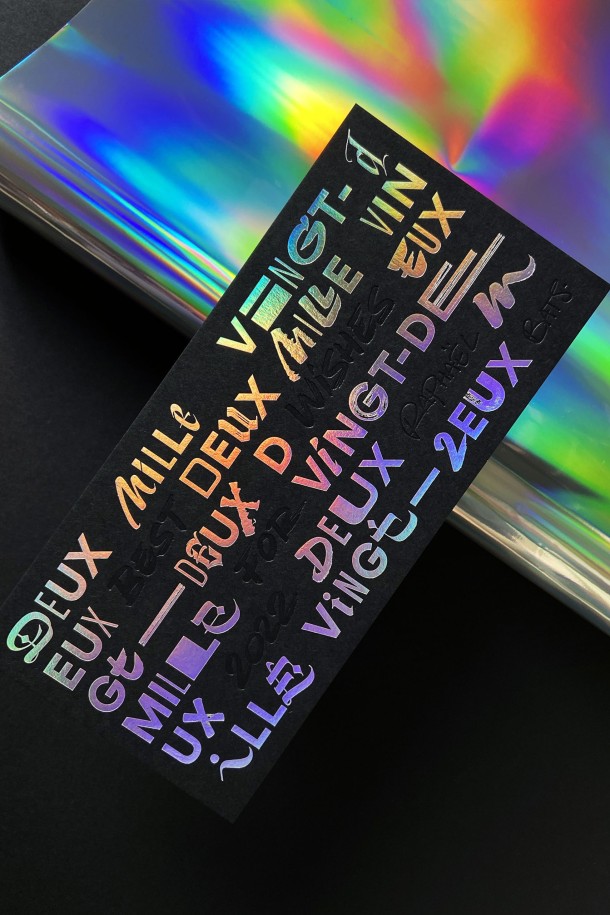 DEUX MILLE VINGT-d
EUX BEST DEUX MILLE VIN
Gt—DEUX D WISHES EUX
MILLE FOR ViNGT-DE
UX 2022 DEUX RAPHAËL m
iLLE ViNGt—2EUX